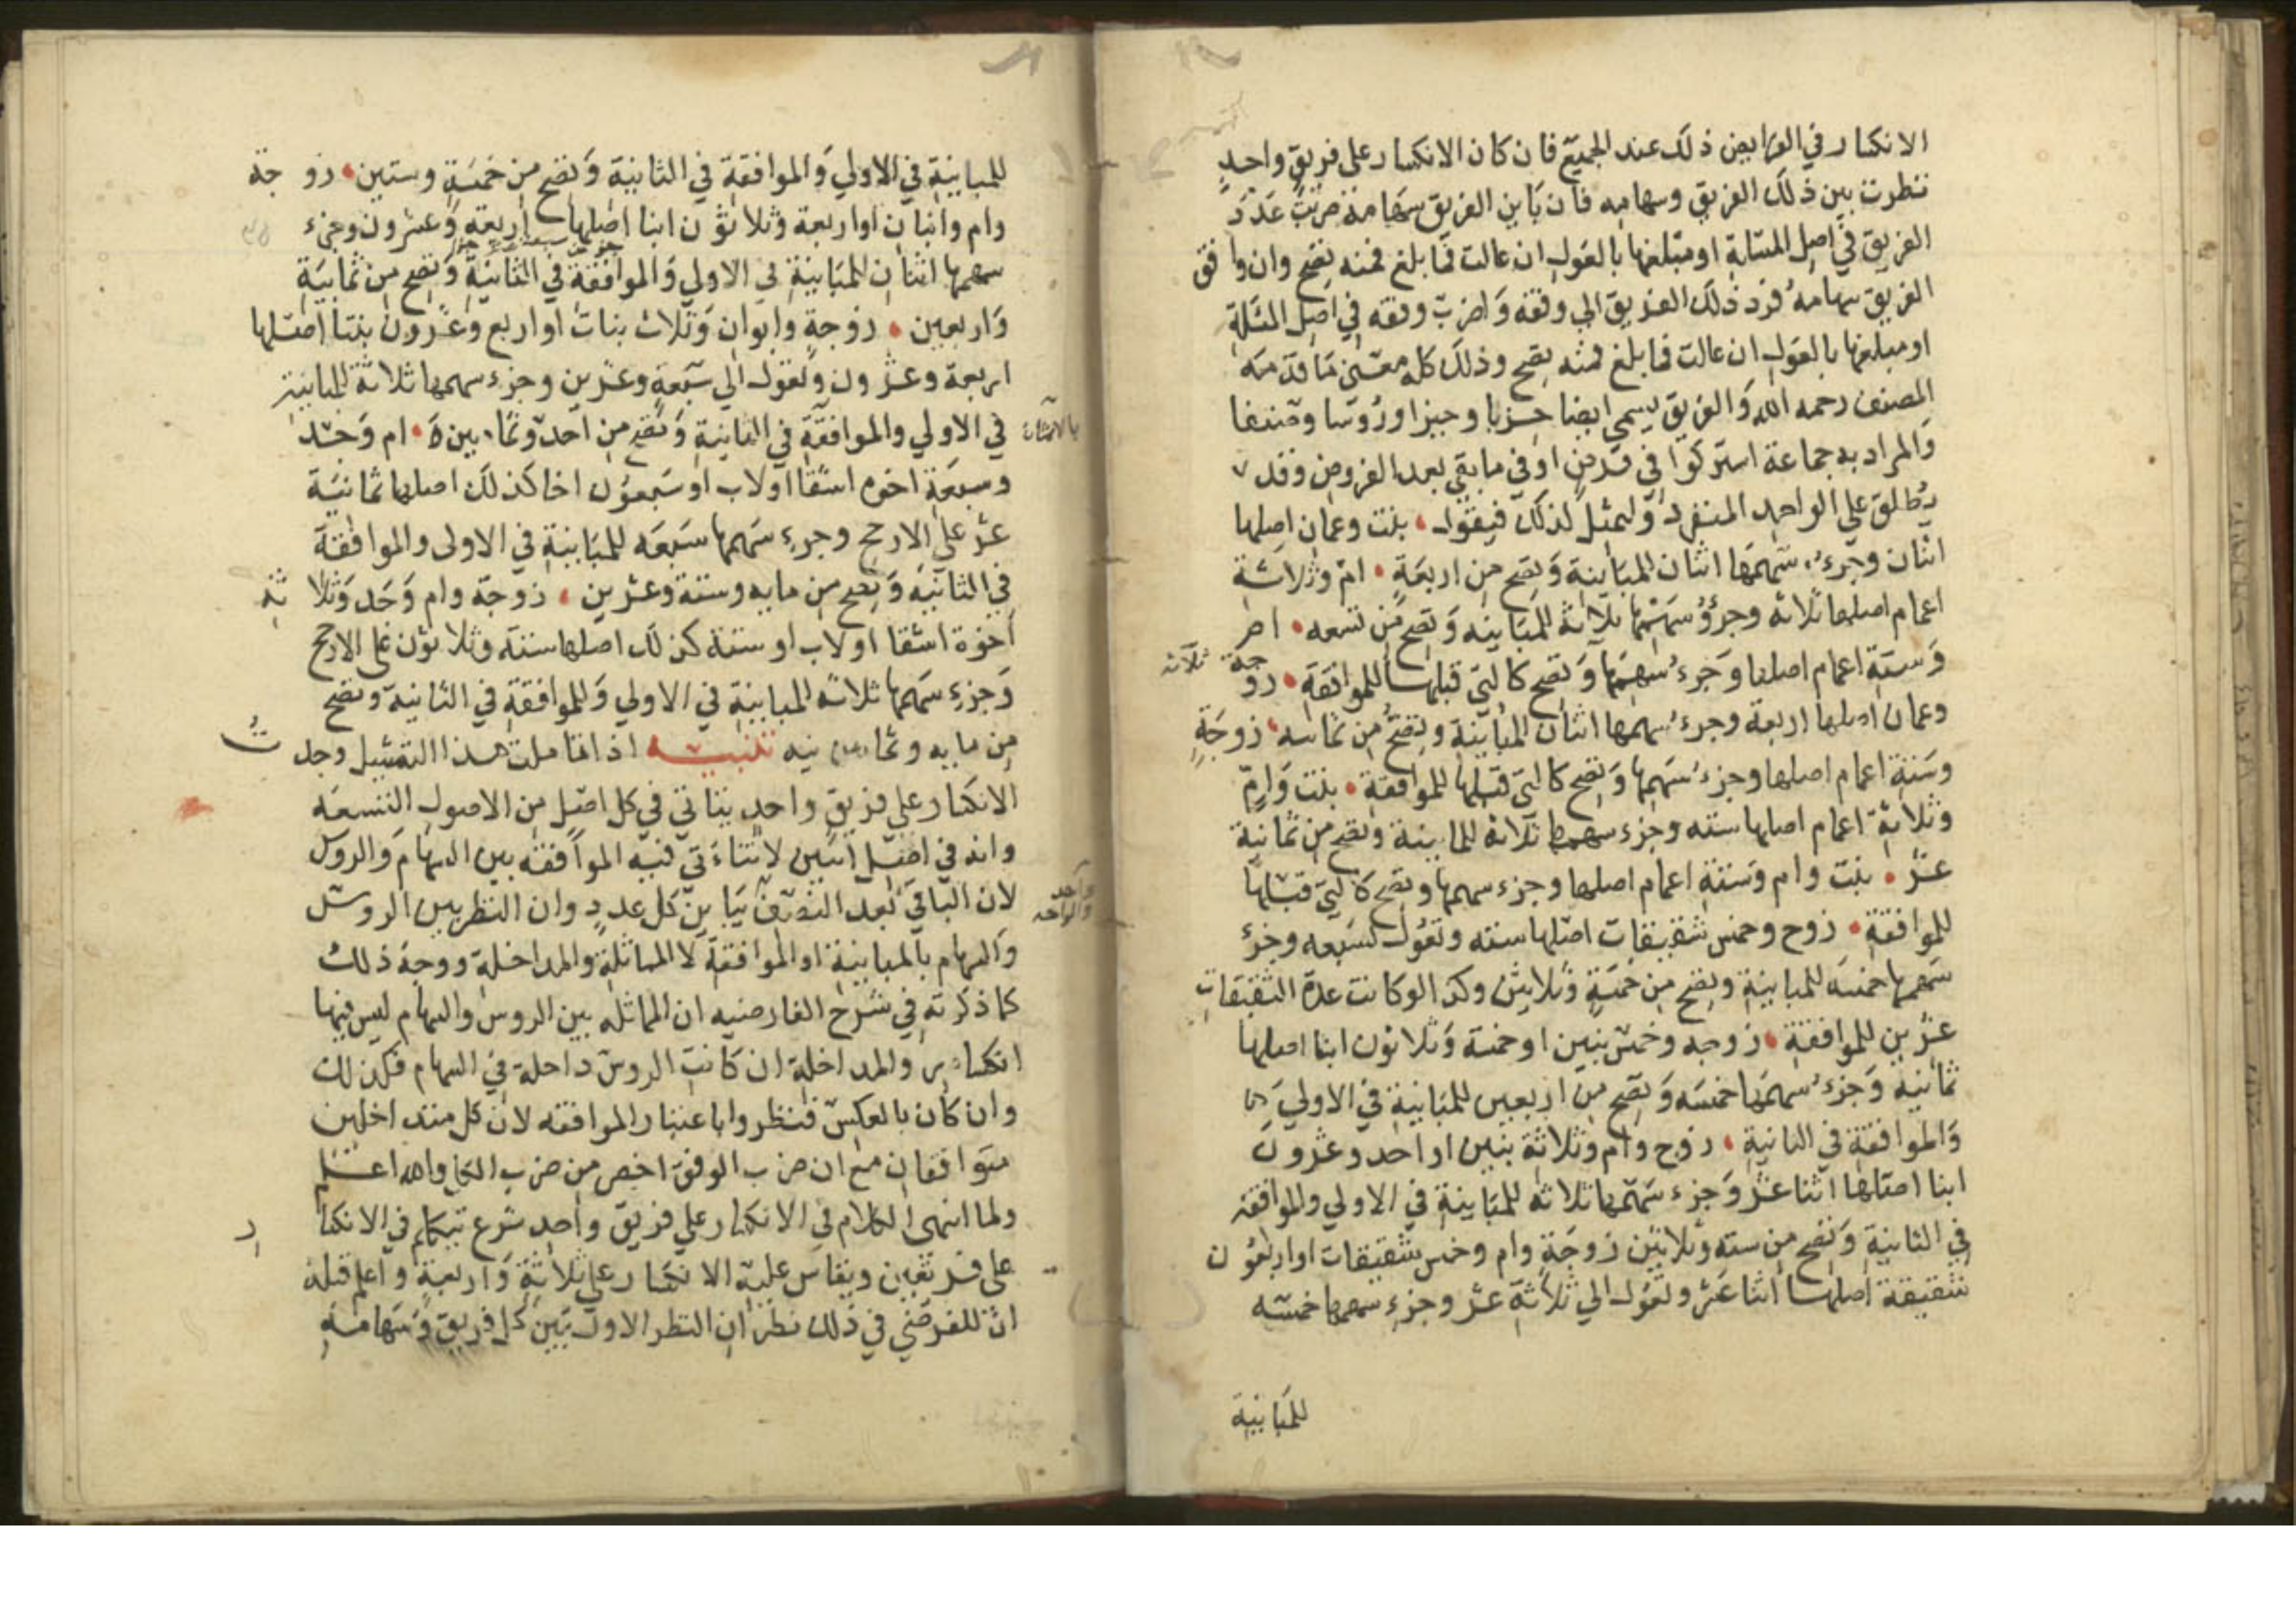 الانكسار في الفرايض ذلك عند الجميع فان كان الانكسار على فريق واحد
نظرت بين ذلك الفريق وسهامه فان باين الفريق سهامه ضربت عدد
الفريق في اصل المسئلة او مبلغها بالعول ان عالت فما بلغ فمنه تصح وان وافق
الفريق سهامه فرد ذلك الفريق الي وفقه واضرب وفقه في اصل المسئلة
او مبلغها بالعول ان عالت فما بلغ فمنه تصح وذلك كله معنى ما قدمه
المصنف رحمه الله والفريق يسمي ايضا حزبا وحيزا ورؤسا وصنفا
والمراد به جماعة اشتركوا في فرض او في ما بقي بعد الفروض وقد
يطلق علي الواحد المنفرد ولنمثل لذلك فيقول بنت وعمان اصلها
اثنان وجزء سهمها اثنان للمباينة وتصح من اربعة ام وثلاثة
اعمام اصلها ثلاثه وجزؤ سهمها ثلاثة للمباينه وتصح من تسعه ام
وستة اعمام اصلها وجزء سهمها وتصح كالتي قبلها للموافقة زوجة ثلاثه
وعمان اصلها اربعة وجزء سهمها اثنان للمباينة وتصح من ثمانيه زوجة
وستة اعمام اصلها وجزء سهمها وتصح كالتي قبلها للموافقة بنت وام
وثلاثة اعمام اصلها سته وجزء سهمها ثلاثة للمباينة وتصح من ثمانية
عشر بنت وام وستة اعمام اصلها وجزء سهمها وتصح كالتي قبلها
للموافقة زوج وخمس شقيقات اصلها سته وتعول لسبعه وجزء
سهمها خمسه للمباينة وتصح من خمسة وثلاثين وكذا لو كانت عدة الشقيقات
عشرين للموافقة زوجه وخمس بنين او خمسة وثلاثون ابنا اصلها
ثمانية وجزء سهمها خمسه وتصح من اربعين للمباينة في الاولي
والموافقة في الثانية زوج وام وثلاثة بنين او احد وعشرون
ابنا اصلها اثنا عشر وجزء سهمها ثلاثه للمباينة في الاولي والموافقة
في الثانية وتصح من سته وثلاثين زوجة وام وخمس شقيقات او اربعون
شقيقة اصلها اثنا عشر وتعول الي ثلاثة عشر وجزء سهمها خمسه
للمباينة
للمباينة في الاولي والموافقة في الثانية وتصح من خمسة وستين زوجة
وام وابنان او اربعة وثلاثون ابنا اصلها اربعة وعشرون وجزء
سهمها اثنان للمباينة في الاولي والموافقة في الثانية وتصح من ثمانية
واربعين زوجة وابوان وثلاث بنات او اربع وعشرون بنتا اصلها
اربعة وعشرون وتعول الي سبعة وعشرين وجزء سهمها ثلاثة للمباينة
في الاولي والموافقة في الثانية وتصح من احد وثمانين ام وجد
وسبعة اخوه اشقا او لاب او سبعون اخا كذلك اصلها ثمانية
عشر على الارجح وجزء سهمها سبعه للمباينة في الاولى والموافقة
في الثانية وتصح من مايه وستة وعشرين زوجة وام وجد وثلاثة
اخوة اشقا او لاب او ستة كذلك اصلها ستة وثلاثون على الارجح
وجزء سهمها ثلاثة للمباينة في الاولي وللموافقة في الثانية وتصح
من مايه وثمانيه تنبيه اذا تاملت هذا التمثيل وجدت
الانكسار علي فريق واحد يتاتي في كل اصل من الاصول التسعه
وانه في اصل اثنين لا يتاتي فيه الموافقه بين السهام والروس
لان الباقي بعد النصف يباين كل عدد وان النظر بين الروس
والسهام بالمباينة او الموافقة لا المماثلة والمداخلة ووجه ذلك
كما ذكرته في شرح الفارضيه ان المماثله بين الروس والسهام ليس فيها
انكسار والمداخلة ان كانت الروس داخلة في السهام فكذلك
وان كان بالعكس فنظروا باعتبار الموافقه لان كل متداخلين
متوافقان مع ان ضرب الوفق اخصر من ضرب الكل والله اعلم
ولما انهى الكلام في الانكسار علي فريق واحد شرع تيكلم في الانكسار
على فريقين ويقاس عليه الانكسار علي ثلاثة واربعة واعلم قبله
ان للفرضي في ذلك نظران النظر الاول بين كل فريق وسهامه